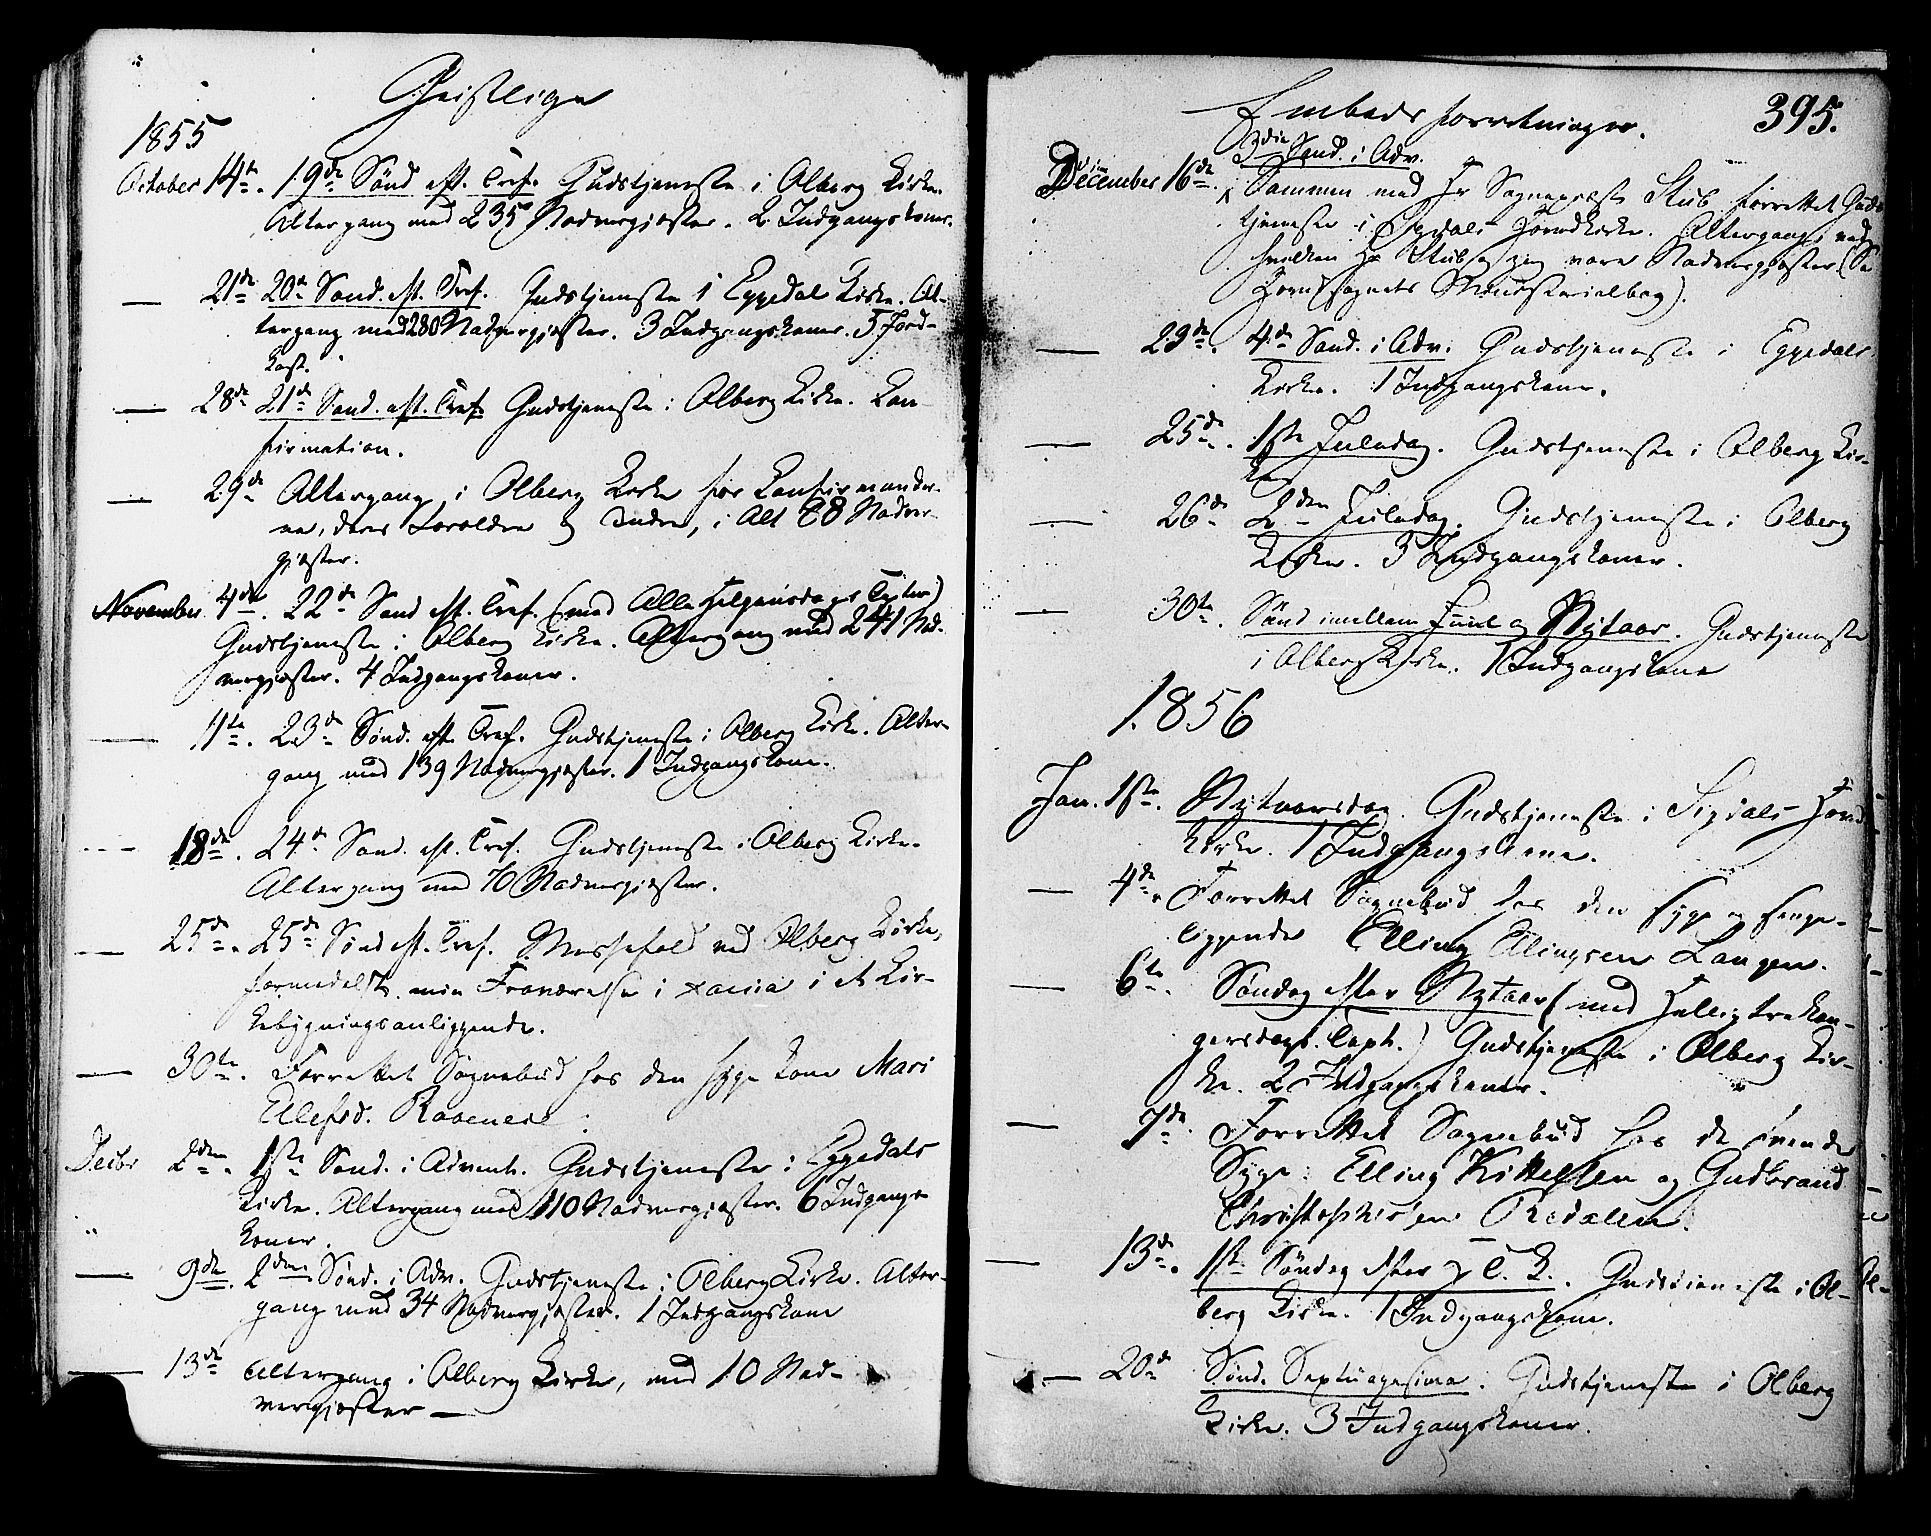 Geistlige
1855
October 14de. 19de Sønd eft. Tref. Gudstjeneste i Olberg Kirke.
Altergang med 235 Nadvergjæster. 2 Indgangskoner.
— 21de 20de Sønd. eft. Tref. Gudstjeneste i Eggedals Kirke. Al-
tergang med 280 Nadvergjæster. 3 Indgangskoner. 5 Jord-
kast.
— 28de 21de Sønd. eft. Tref. Gudstjeneste i Olberg Kirke. Con-
firmation.
— 29de Altergang i Olberg Kirke for Confirmander-
ne, deres Forældre & Andre, i Alt 88 Nadver-
gjæster.
November 4de. 22de Sønd eft. Tref. (med Alle Helgensdags Texter)
Gudstjeneste i Olberg Kirke. Altergang med 241 Nad-
vergjæster. 4 Indgangskoner.
— 11te. 23de Sønd. eft. Tref. Gudstjeneste i Olberg Kirke. Alter-
gang med 139 Nadvergjæster. 1 Indgangskone.
— 18de. 24de Sønd. eft. Tref. Gudstjeneste i Olberg Kirke.
Altergang med 70 Nadvergjæster.
— 25de. 25de Sønd eft. Tref. Messefald ved Olberg Kirke,
formedelst min Fraværelse i et Kir-
kebygningsanliggende.
— 30te. Forrettet Sognebud hos den syge Kone Mari
Ellefsd.
Decbr 2den. 1ste Sønd. i Advent. Gudstjeneste i Eggedals
Kirke. Altergang med 110 Nadvergjæster. 6 Indgangs-
koner.
— 9de. 2den Sønd. i Adv. Gudstjeneste i Olberg Kirke. Alter-
gang med 34 Nadvergjæster. 1 Indgangskone
— 13de Altergang i Olberg Kirke, med 10 Nad-
vergjæster —
Embedsforretninger. 395.
3die Sønd. i Adv.
December 16de. Sammen med Hr Sognepræst Stub forrettet Guds-
tjeneste i Sigdals Hovedkirke. Altergang, ved
hvilken Hr Stub og jeg vare Nadvergjæster (Se
Hovedsognets Ministerialbog).
— 23de. 4de Sønd. i Adv. Gudstjeneste i Eggedals
Kirke. 1 Indgangskone.
— 25de. 1ste Juledag. Gudstjeneste i Olberg Kir-
ke.
— 26de. 2den Juledag. Gudstjeneste i Olberg
Kirke. 3 Indgangskoner.
— 30te. Sønd imellem Juul og Nytaar. Gudstjeneste
i Olberg Kirke. 1 Indgangskone
1856
Jan. 1ste. Nytaarsdag. Gudstjeneste i Sigdals Hoved
Kirke. 1 Indgangskone.
— 4de. Forrettet Sognebud hos den syge og senge-
liggende Elling Ellingsen Langen.
— 6te. Søndag efter Nytaar (med Helligtrekon-
gersdags Text.) Gudstjeneste i Olberg Kir-
ke. 2 Indgangskoner.
— 7de. Forrettet Sognebud hos de tvende
Syge: Elling Kittelsen og Gudbrand
Christophersen Redalen.
— 13de. 1ste Søndag efter H. T. K. Gudstjeneste i Ol-
berg Kirke. 1 Indgangskone.
— 20de Sønd. Septuagesima. Gudstjeneste i Olberg
Kirke. 3 Indgangskoner.